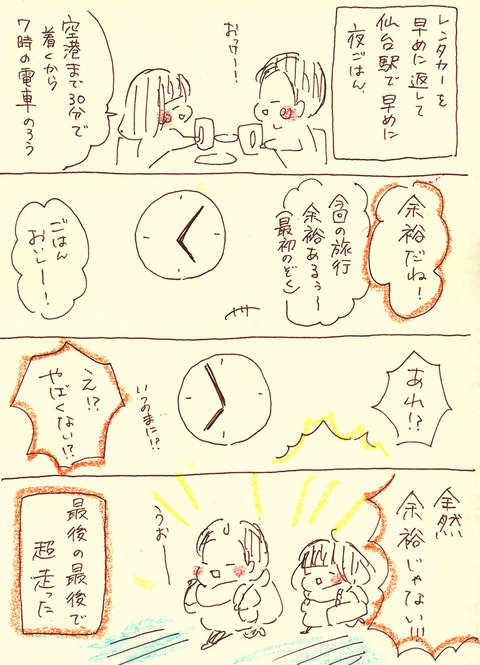 レンタカーを
早めに返して
仙台駅で早めに
夜ごはん
おっけー!
空港まで30分で
着くから
7時の電車のろう
余裕だね!
今回の旅行
余裕あるぅ〜
(最初のぞく)
ごはん
おいしー!
あれ!?
いつのまに!?
え!?
やばくない!?
全然
余裕じゃない!!!
うおー
最後の最後で
超走った